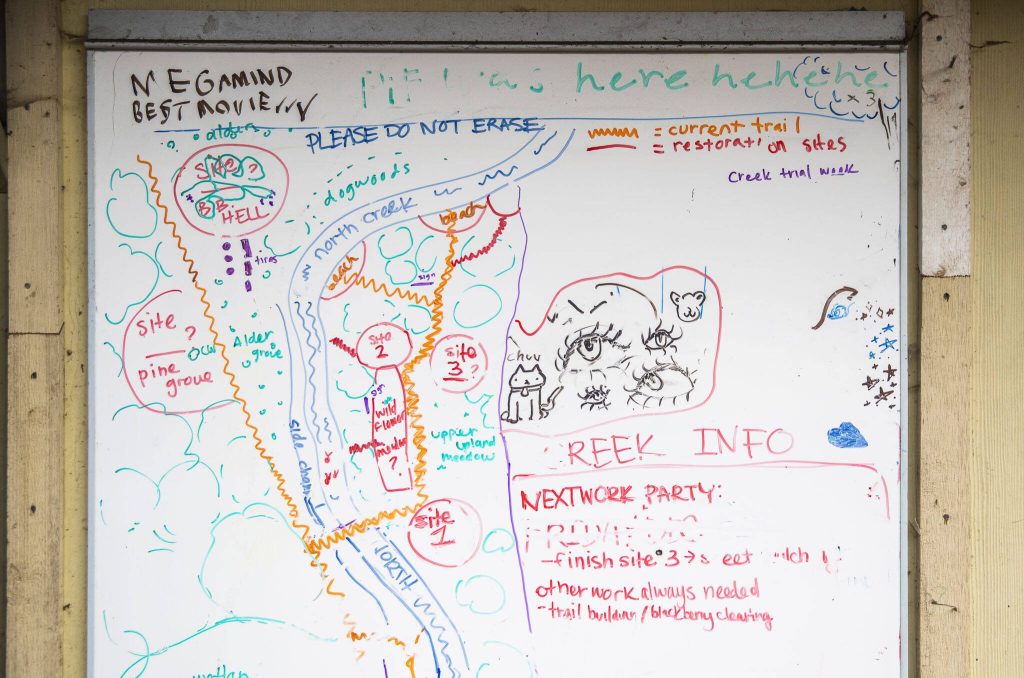 MEGAMIND
BEST MOVIE
here hehehehe
x 3
PLEASE DO NOT ERASE
= current trail
= restoration sites
Creek trial wook
alders
Site ? ?
BB
HELL
dogwoods
north creek
beach
beach
sign
tires
Site ?
pine
grove
Alder
grove
site
2
site
3 ?
sign
wild
flower
meadow
?
upper
upland
meadow
side channel
site
1
NORTH
chuu
REEK INFO
NEXTWORK PARTY:
-finish site 3 →
other work always needed
- trail building / blackberry clearing